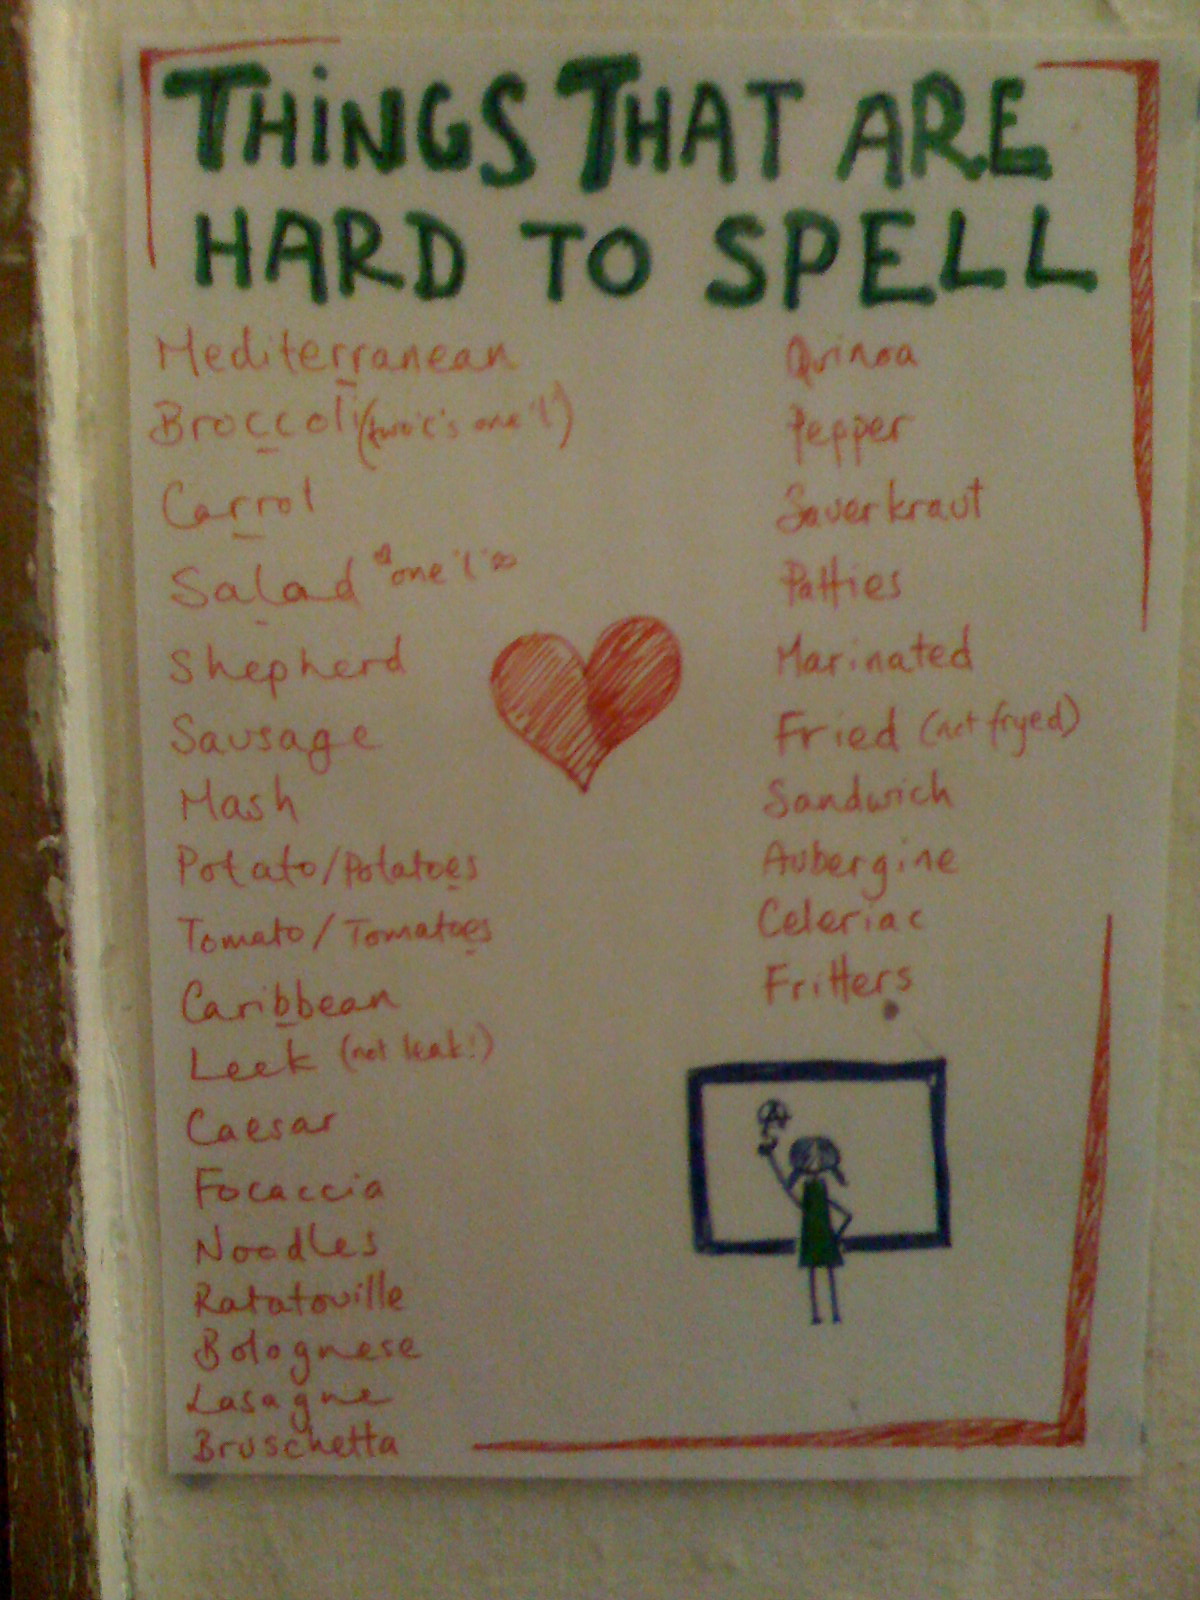 THiNGS THAT ARE
HARD TO SPELL
Mediterranean
Broccoli (two 'c's one 'l')
Carrot
Salad *one 'l'*
Shepherd
Sausage
Mash
Potato/Potatoes
Tomato/Tomatoes
Caribbean
Leek (not leak!)
Caesar
Focaccia
Noodles
Ratatouille
Bolognese
Lasagne
Bruschetta
Quinoa
Pepper
Sauerkraut
Patties
Marinated
Fried (not fryed)
Sandwich
Aubergine
Celeriac
Fritters